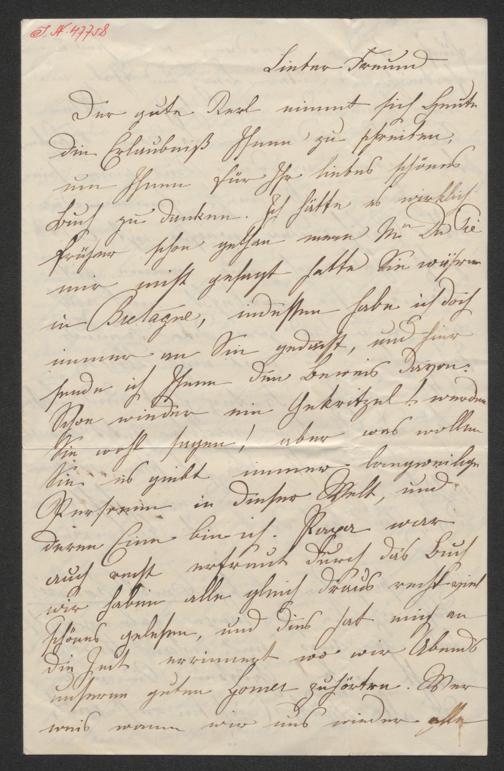 I. N. 47758
Lieber Freund
Der gute Kerl nimmt sich heute
die Erlaubniß Ihnen zu schreiben,
um Ihnen für Ihr liebes schönes
Buch zu danken. Ich hätte es wirklich
früher schon gethan wenn
mir nicht gesagt hätte Sie wären
in Bretagne, indessen habe ich doch
immer an Sie gedacht, und hier
sende ich Ihnen den Beweis davon.
Schon wieder ein Gekritzel! werden
Sie wohl sagen! aber was wollen
Sie es giebt immer langweilige
Personnen in dieser Welt, und
deren Eine bin ich. Papa war
auch recht erfreut durch das Buch
wir haben alle gleich draus recht viel
schönes gelesen, und dies hat mich an
die Zeit erinnert wo wir Abends
unseren guten Homer zuhörten. Wer
weis wann wir uns wieder alle